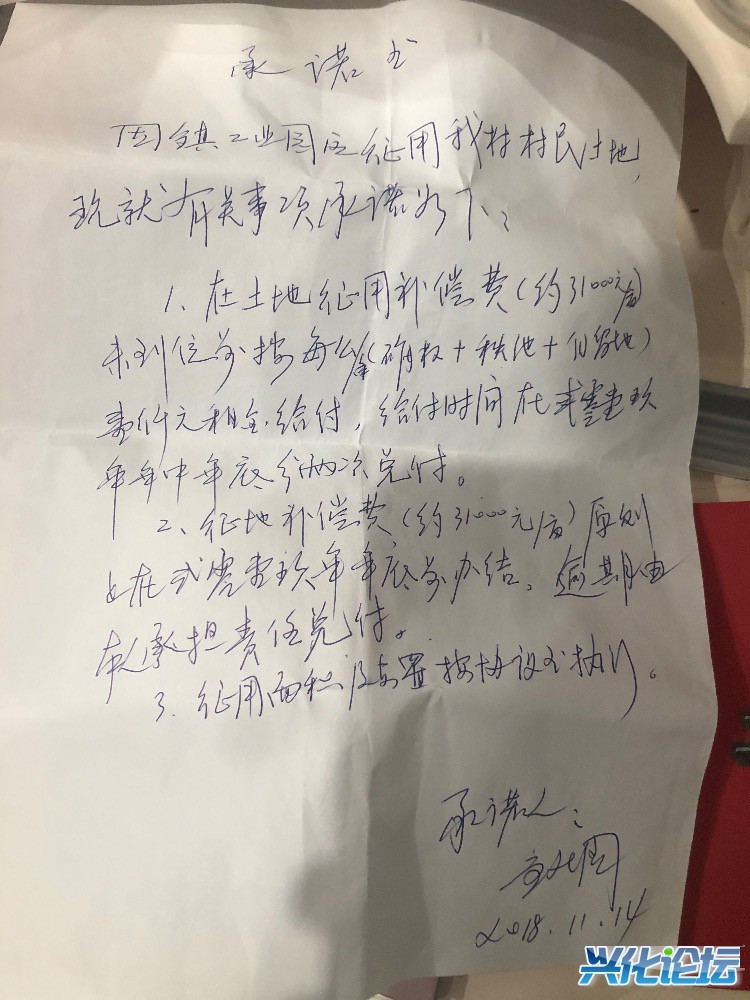 承诺书
因镇工业园区征用我村村民土地,
现就有关事项承诺如下:
1、在土地征用补偿费(约31000元/亩)
未到位前按每亩(确权+秧池+自留地)
壹仟元租金给付,给付时间在贰零壹玖
年年中年底分两次兑付。
2、征地补偿费(约31000元/亩)原则
上在贰零壹玖年年底前办结。逾期由
本人承担责任兑付。
3、征用面积及安置按协议书执行。
承诺人:
2018.11.14
兴化论坛